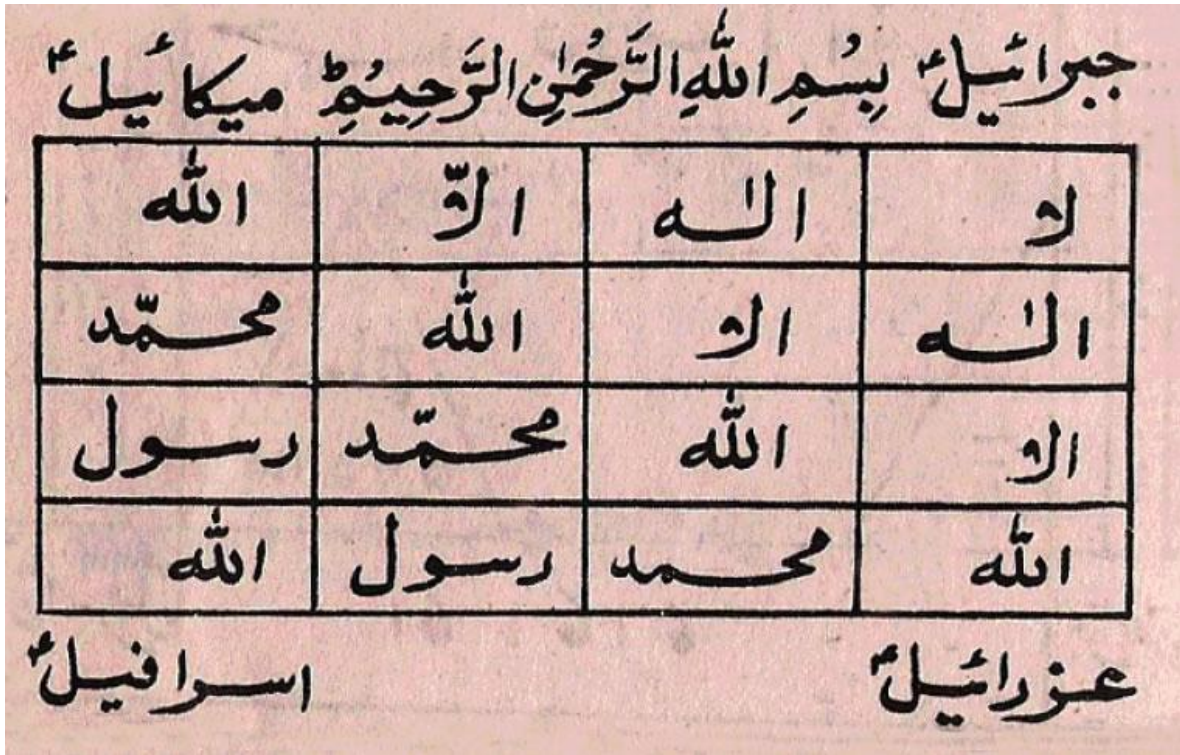 جبرائیلؑ بِسْمِ اللّٰهِ الرَّحْمٰنِ الرَّحِیْمِؕ میکائیلؑ
لا الٰه الّا اللّٰه
الٰه الا اللّٰه محمّد
الا اللّٰه محمّد رسول
اللّٰه محمد رسول اللّٰه
عزرائیلؑ اسرافیلؑ